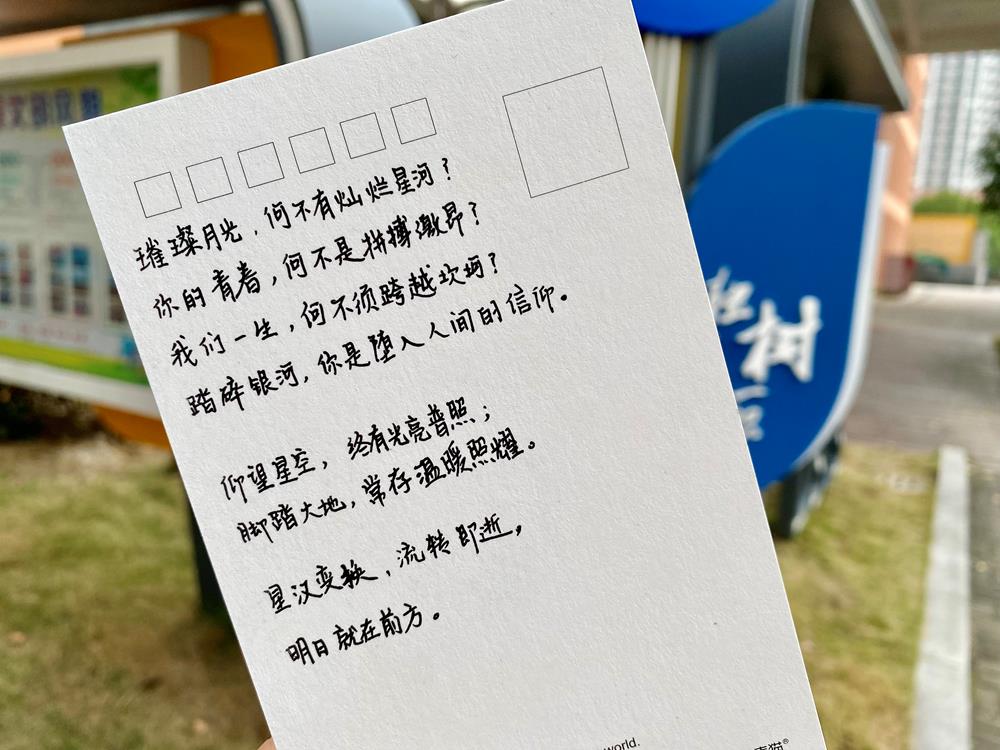 璀璨月光，何不有灿烂星河？
你的青春，何不是拼搏激昂？
我们一生，何不须跨越坎坷？
踏碎银河，你是堕入人间的信仰。
仰望星空，终有光亮普照；
脚踏大地，常存温暖照耀。
星汉变换，流转即逝，
明日就在前方。
world.
树